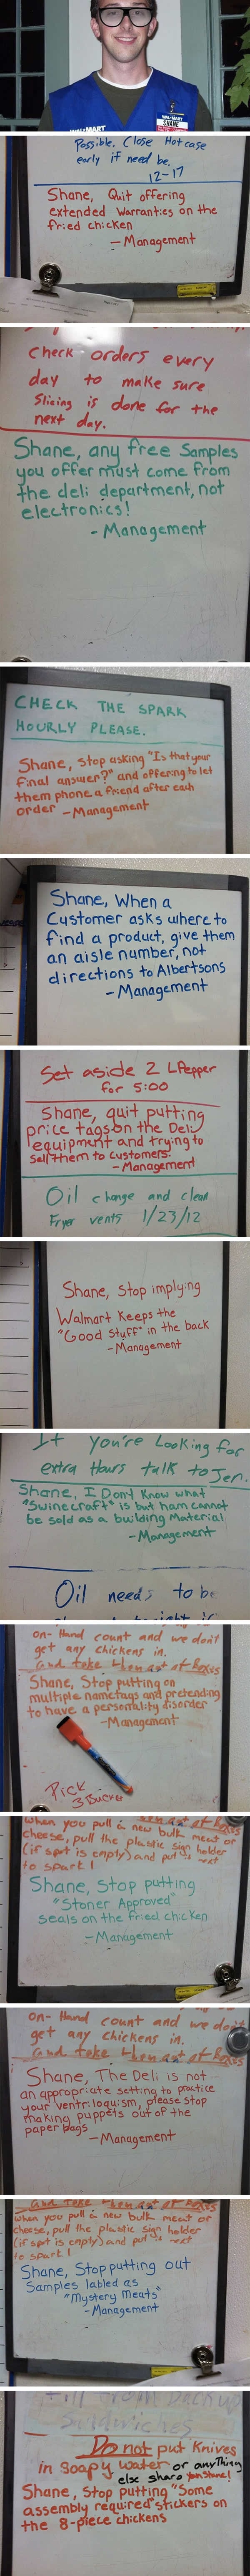 WAL*MART
WAL*MART
SHANE
Possible. Close Hot case
early if need be.
12-17
Shane, Quit offering
extended Warranties on the
fried chicken
- Management
Check orders every
day to make sure
Slicing is done for the
next day.
Shane, any free Samples
you offer must come from
the deli department, not
electronics!
- Management
CHECK THE SPARK
HOURLY PLEASE.
Shane, Stop asking "Is that your
final answer?" and offering to let
them phone a friend after each
order - Management
Shane, When a
Customer asks where to
find a product, give them
an aisle number, not
directions to Albertsons
- Management
Set aside 2 LPepper
for 5:00
Shane, quit putting
price tags on the Deli
equipment and trying to
sell them to customers.
- Management
Oil change and clean
Fryer vents 1/23/12
Shane, Stop implying
Walmart Keeps the
"Good Stuff" in the back
- Management
If you're Looking for
extra Hours talk to Jen.
Shane, I Don't Know what
"Swinecraft" is but ham cannot
be sold as a building Material
- Management
Oil needs to be
on-Hand count and we don't
get any chickens in.
and take them out of Boxes
Shane, Stop putting on
multiple nametags and pretending
to have a personality disorder
- Management
Pick
3 Bucke
When you pull a new bulk meat or
cheese, pull the plastic sign holder
(if spot is empty) and put
to spark!
Shane, Stop putting
"Stoner Approved"
seals on the fried chicken
- Management
on-Hand count and we don't
get any chickens in.
and take them out of Boxes
Shane, The Deli is not
an appropriate setting to practice
your ventriloquism, please stop
making puppets out of the
paper bags
- Management
and take them out of Boxes
When you pull a new bulk meat or
cheese, pull the plastic sign holder
(if spot is empty) and put
to spark!
Shane, Stop putting out
Samples labled as
"Mystery Meats"
- Management
Sandwiches
Do not put Knives
in soapy water or anything
else sharp
Shane, Stop putting "Some
assembly required" stickers on
the 8-piece chickens